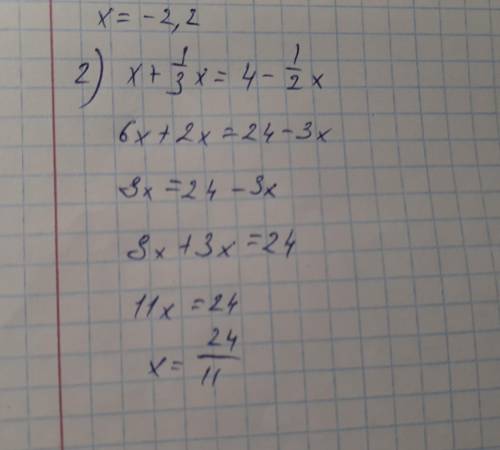 x = -2,2
2) x + 1/3 x = 4 - 1/2 x
6x + 2x = 24 - 3x
8x = 24 - 3x
8x + 3x = 24
11x = 24
x = 24/11